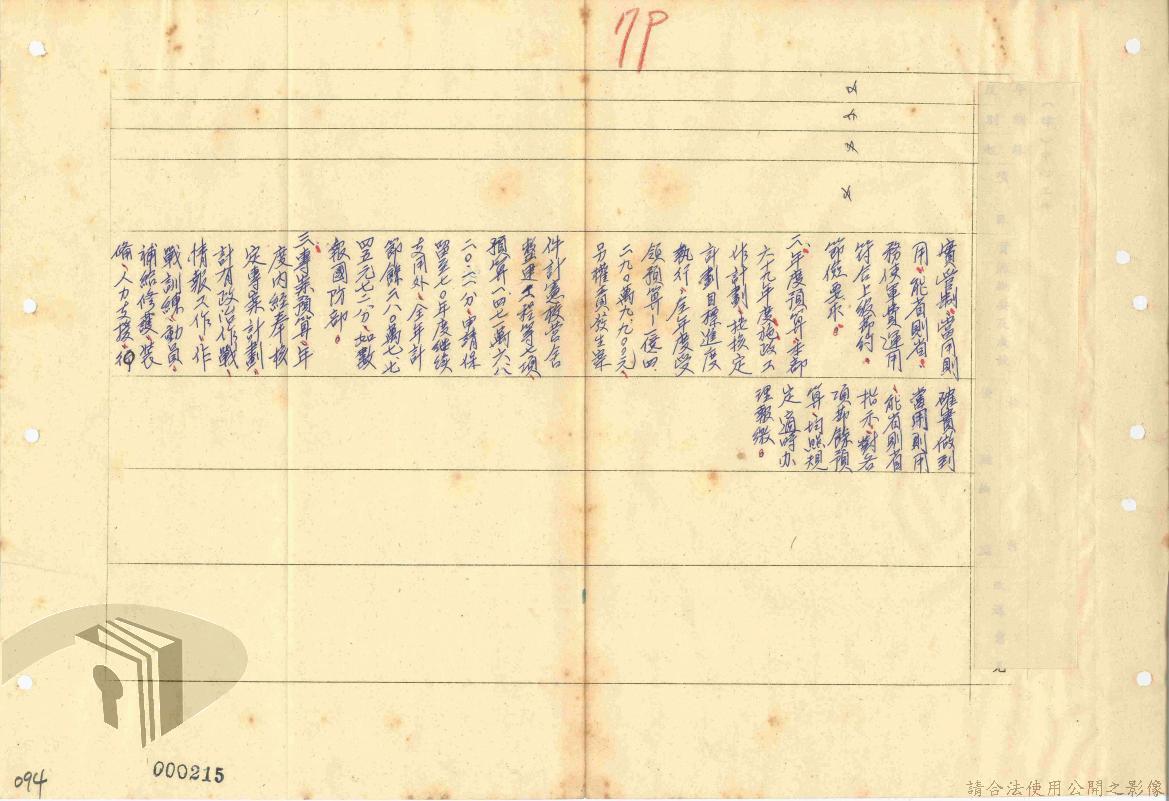 17P
實管制,當用則
用,能省則省,
務使軍費運用
符合上級節約、
節儉要求。
二、年度預算:本部
六十九年度施政工
作計劃,均按核定
計劃目標進度
執行,全年度受
領預算一億四
二九0萬九、九00元,
另權責發生案
件計憲校營舍
整建工程等七項,
預算一四七萬六、八
二0.二六分,申請保
留至七0年度繼續
支用外,全年計
節餘六八萬七、七
四五元七二分,如數
報國防部。
三、專案預算:年
度內經奉核
定專案計劃,
計有政治作戰、
情報工作、作
戰訓練、動員、
補給修護、裝
備、人力支援、行
確實做到
當用則用
,能省則省
指示,對各
項節餘預
算,均照規
定適時办
理報繳。
094
000215
請合法使用公開之影像